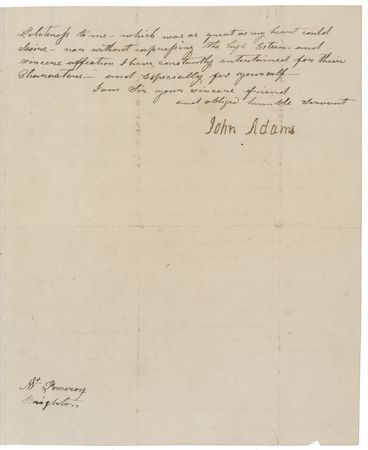 Politeness to me – which was as great as my heart could
desire – nor without expressing the high Esteem and
sincere affection I have constantly entertained for their
Characters – and Especially for yourself –
I am Sir your sincere friend
and obliged humble Servant
John Adams
Mr Pomeroy
Brighton